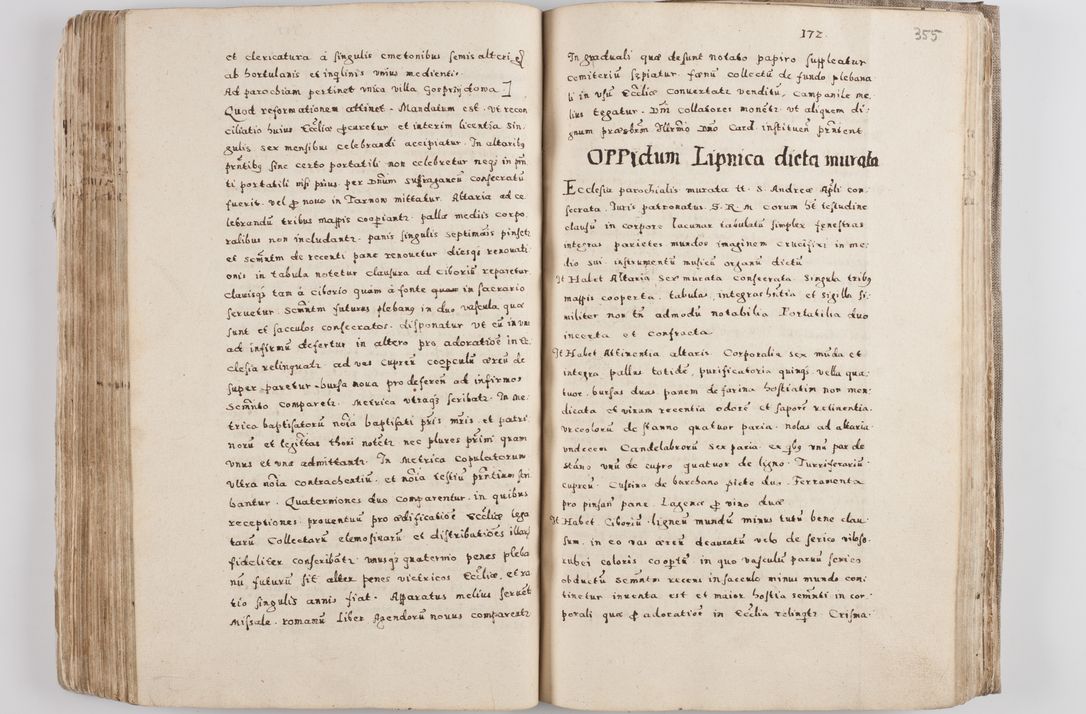 et clericatura á singulis cmetonibus semis alteri9
ab hortulanis et inqlinis vnius medienti9
Ad parochiam pertinet vnica villa Gosprzydowa
Quod reformationem attinet. Mandatum est. vt recon
ciliatio huius Ecclięæ ꝓcaretur et interim licentia sin
gulis sex mensibus celebrandi accipiatur. In altaribꝰ
prńtibꝰ sine certo portatili non celebretur neqꝫ in prń
ti portatili nisi prius per Dnūm suffraganeū consecratū
fuerit. vel ꝓ nouo in Tarnow mittatur. Altaria ad ce
lebrandū tribus mappis coopiantꝛ. pallæ mediis corpo
ralibus non includantꝛ. panis singulis septimāis pinsetꝛ
et Scmńtm de recenti pane renouetur diesqꝫ renouati
onis in tabula notetur clausura ad Ciboriū reparetur
clauisqꝫ tam á ciborio quam á fonte in sacrario
seruetur. Scmńtm futurus plebanꝰ in duo vascula quæ
sunt et sacculos consecratos. disponatur vt cū in vno
ad infirmū defertur in altero pro adoratioē in Ec
clesia relinquatꝛ. ad vas cupreū coopculū æreū de
super paretur. bursa noua pro deferen̄ ad infirmos
Scmńto comparetꝛ. Metrica vtraqꝫ scribatꝛ. In Me
trica baptisatorū noīa baptisati pr̄is mr̄is. et patri
norū et legittās thori notetꝛ nec plures prīmi quam
vnus et vna admittantꝛ. In Metrica Copulatorum
vltra noīa contrachentiū. et noīa testiū prńtium scri
bantur. Quaterniones duo comparentur. in quibus
receptiones. prouentuū pro ædificatioē Eccliæ lega
tarū Collectarū elemosinarū et distributioēs illarū
fideliter conscribātꝛ. vnusqꝫ quaternio penes pleba
nū. futurū sit alter penes victricos Eccliæ, et ra
tio singulis annis fiat. Apparatus melius seruētꝛ
Missale. romanū Liber Agendorū nouus comparentꝛ
172.
355
In graduali quæ desunt notato papiro suppleatur
cemiteriū sæpiatur. fænū collectū de fundo plebana
li in vsū Eccliæ conuertatꝛ venditū. Campanile me
lius tegatur. Dnī collatores monētꝛ vt aliquem di
gnum præsbrm Illrmo Dno Card instituen̄ prńtent
OPPidum Lipnica dicta murata
Ecclesia parochialis murata tt. S. Andreæ Apli con
secrata. Iuris patronatus. S. R. M. corum ht testudine
clausū in corpore lacunar tabulatū simplex fenestras
integras parietes mundos imaginem crucifixi in me
dio sui instrumentū musicū organū dictū
It Habet Altaria Sex murata consecrata. Singula tribꝰ
mappis cooperta. tabulas integras hńtia et sigilla si
militer non tn admodū notabilia Portatilia duo
incerta et confracta
It Habet Attinentia altaris. Corporalia sex mūda et
integra pallas totidē, purificatoria quinqꝫ. vella qua
tuor. bursas duas. panem de farina hostiatim non men
dicata et vinum recentia odorē et saporē retinentia
vrceolorū de stanno quatuor paria. nolas ad altaria
vndecem Candelabrorū sex paria. ex qbꝰ vnū par de
stāno vnū de cupro quatuor de ligno. Turriferariū
cupreū. Custina de barchano picto dua. Ferramenta
pro pinsan̄ pane. Lagenæ ꝓ vino duæ
It Habet. Ciboriū. ligneū mundū minus tutū bene clau
sum. in eo vas æreū deauratū velo de serico viloso.
rubei coloris cooptū. in quo vasculū paruū serico
obductū Scmńtm recens in sacculo minus mundo con
tinetur inuenta est et maior hostia scmńti in cor
porali quæ ꝓ adoratioē in Ecclia relinqtꝛ. Crisma